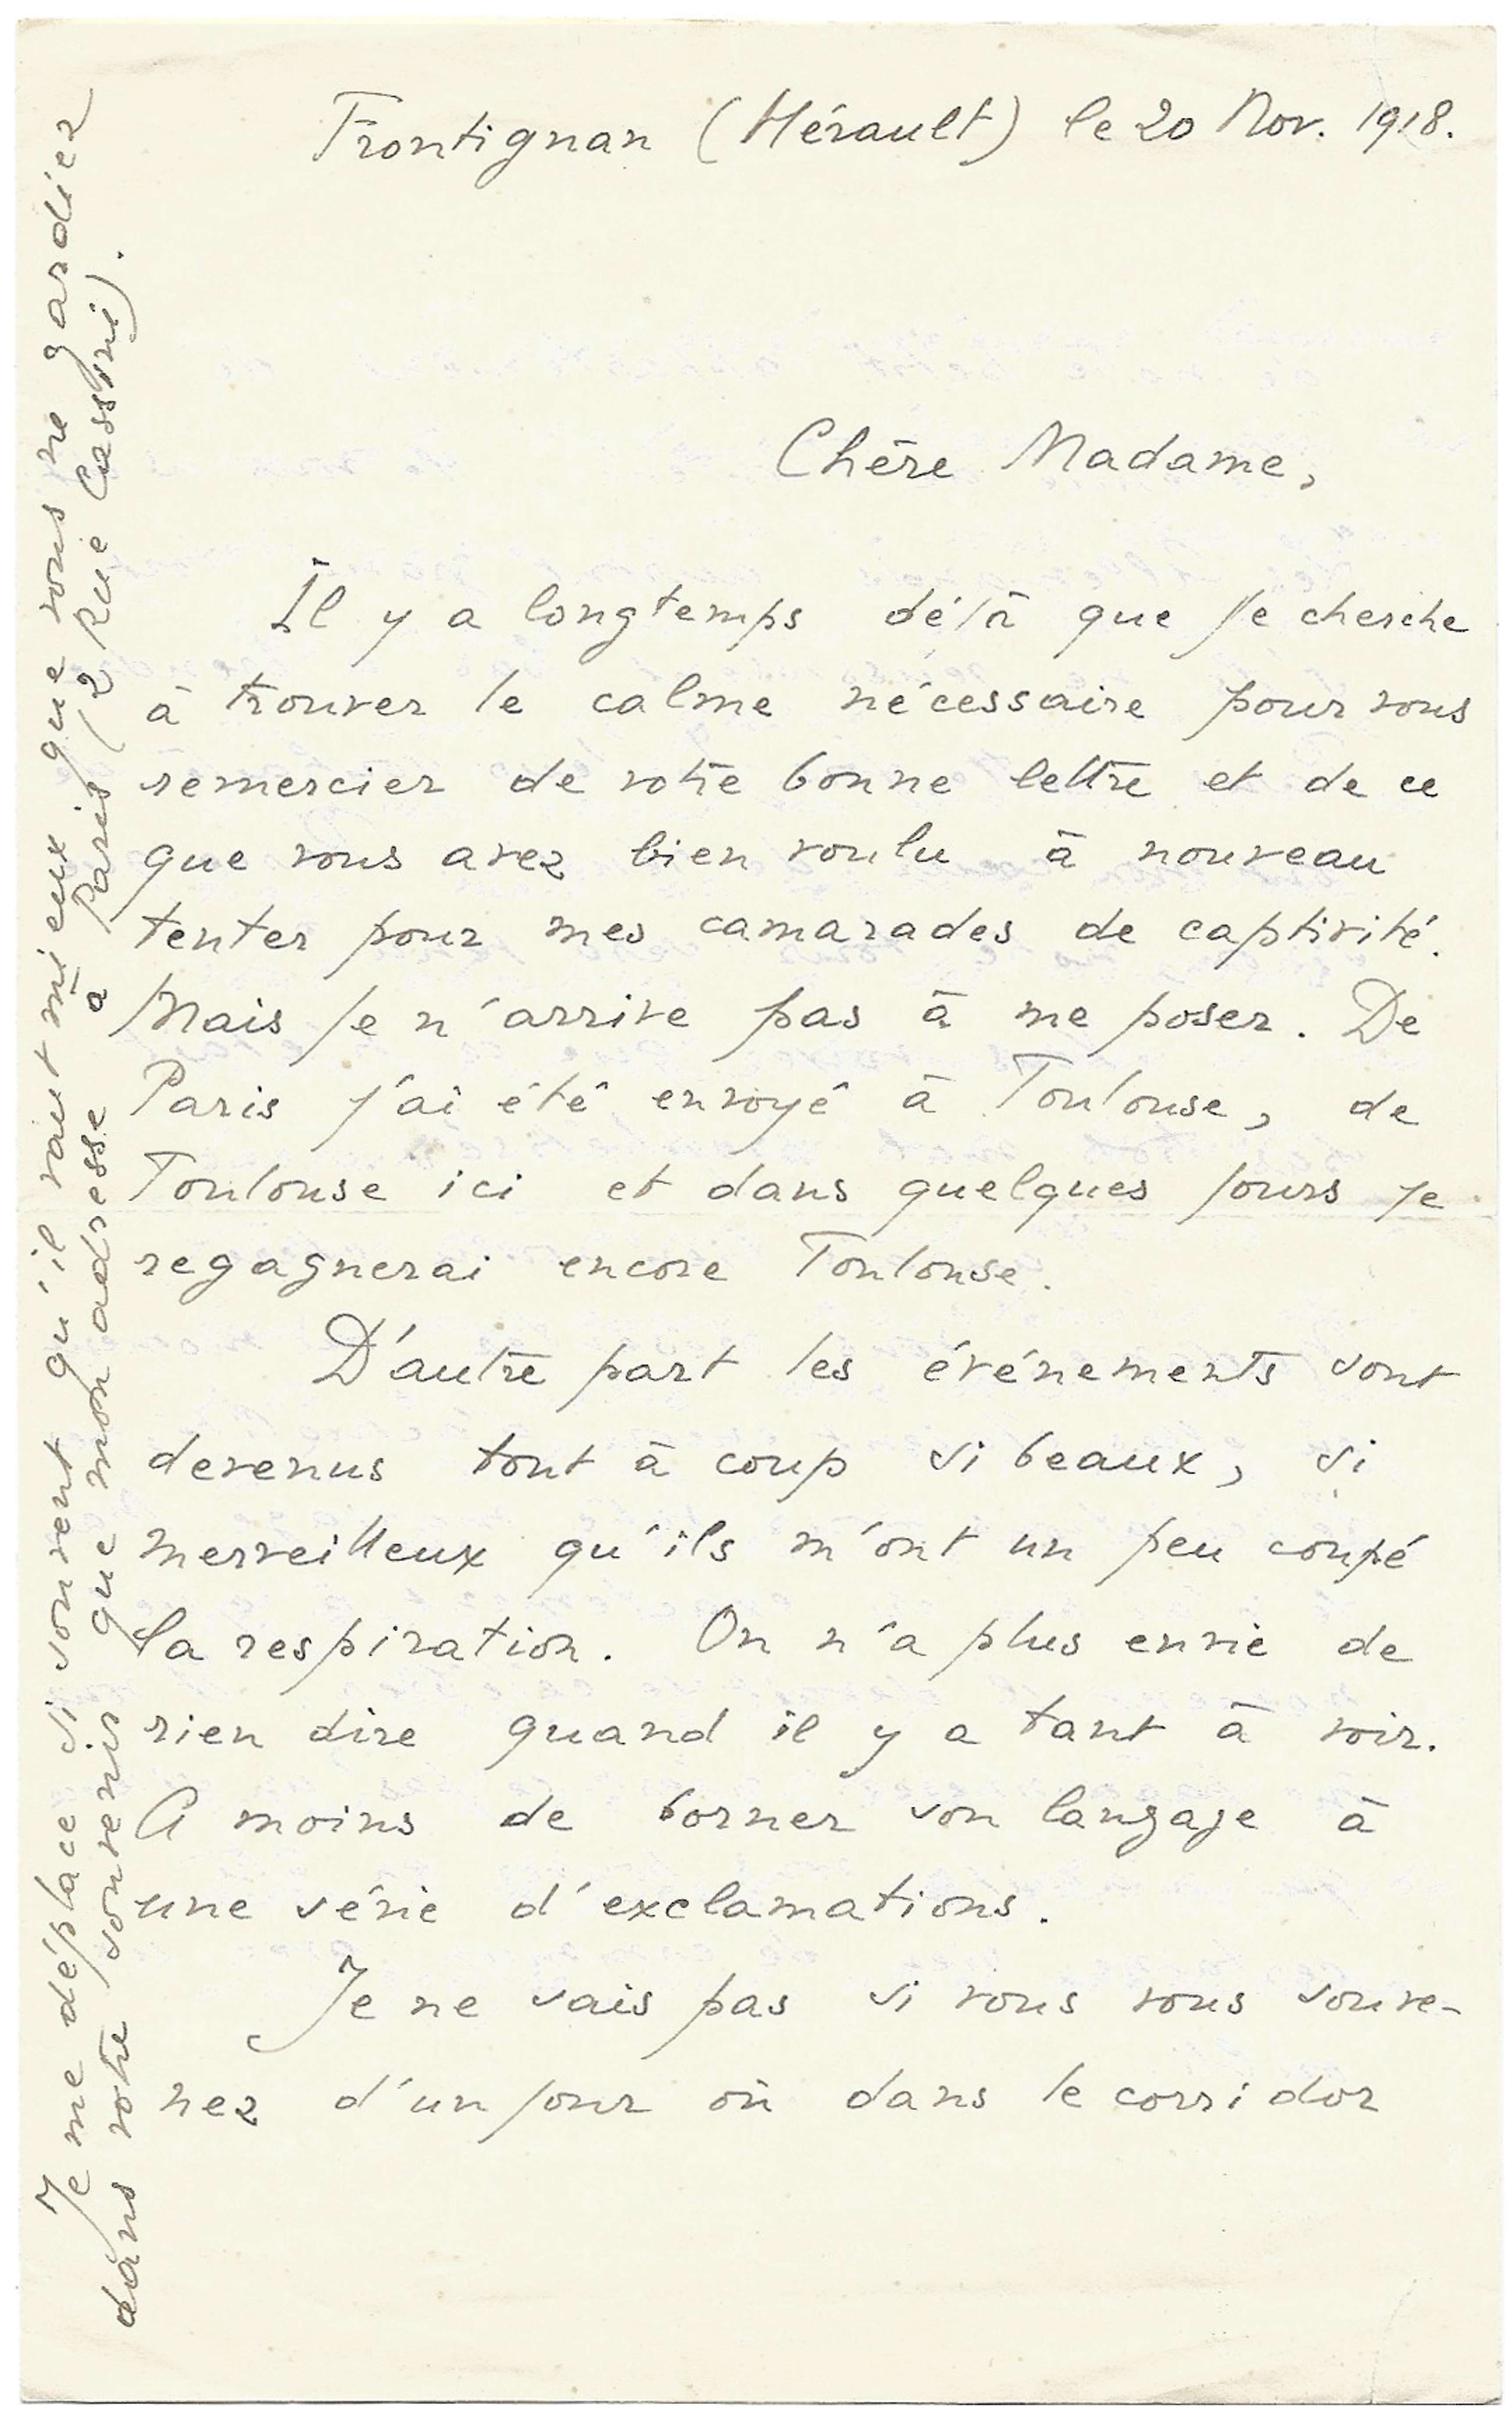 Frontignan (Hérault) le 20 Nov. 1918.
Chère Madame,
Il y a longtemps déjà que je cherche
à trouver le calme nécessaire pour vous
remercier de votre bonne lettre et de ce
que vous avez bien voulu à nouveau
tenter pour mes camarades de captivité.
Mais je n'arrive pas à me poser. De
Paris j'ai été envoyé à Toulouse, de
Toulouse ici et dans quelques jours je
regagnerai encore Toulouse.
D'autre part les événements sont
devenus tout à coup si beaux, si
merveilleux qu'ils m'ont un peu coupé
la respiration. On n'a plus envie de
rien dire quand il y a tant à voir.
A moins de borner son langage à
une série d'exclamations.
Je ne sais pas si vous vous souve-
nez d'un jour où dans le corridor
Je me déplace si souvent qu'il vaut mieux que vous ne gardiez
dans votre souvenir que mon adresse à Paris (2 Rue Cassini).